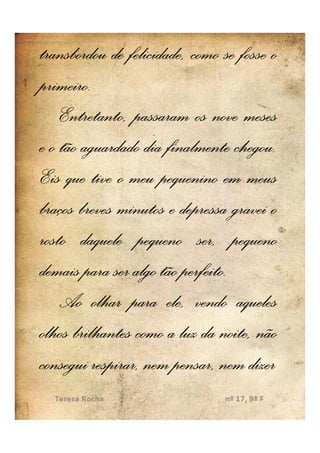 transbordou de felicidade, como se fosse o
primeiro.
Entretanto, passaram os nove meses
e o tão aguardado dia finalmente chegou.
Eis que tive o meu pequenino em meus
braços breves minutos e depressa gravei o
rosto daquele pequeno ser, pequeno
demais para ser algo tão perfeito.
Ao olhar para ele, vendo aqueles
olhos brilhantes como a luz da noite, não
consegui respirar, nem pensar, nem dizer
Teresa Rocha nº 17, 9º F